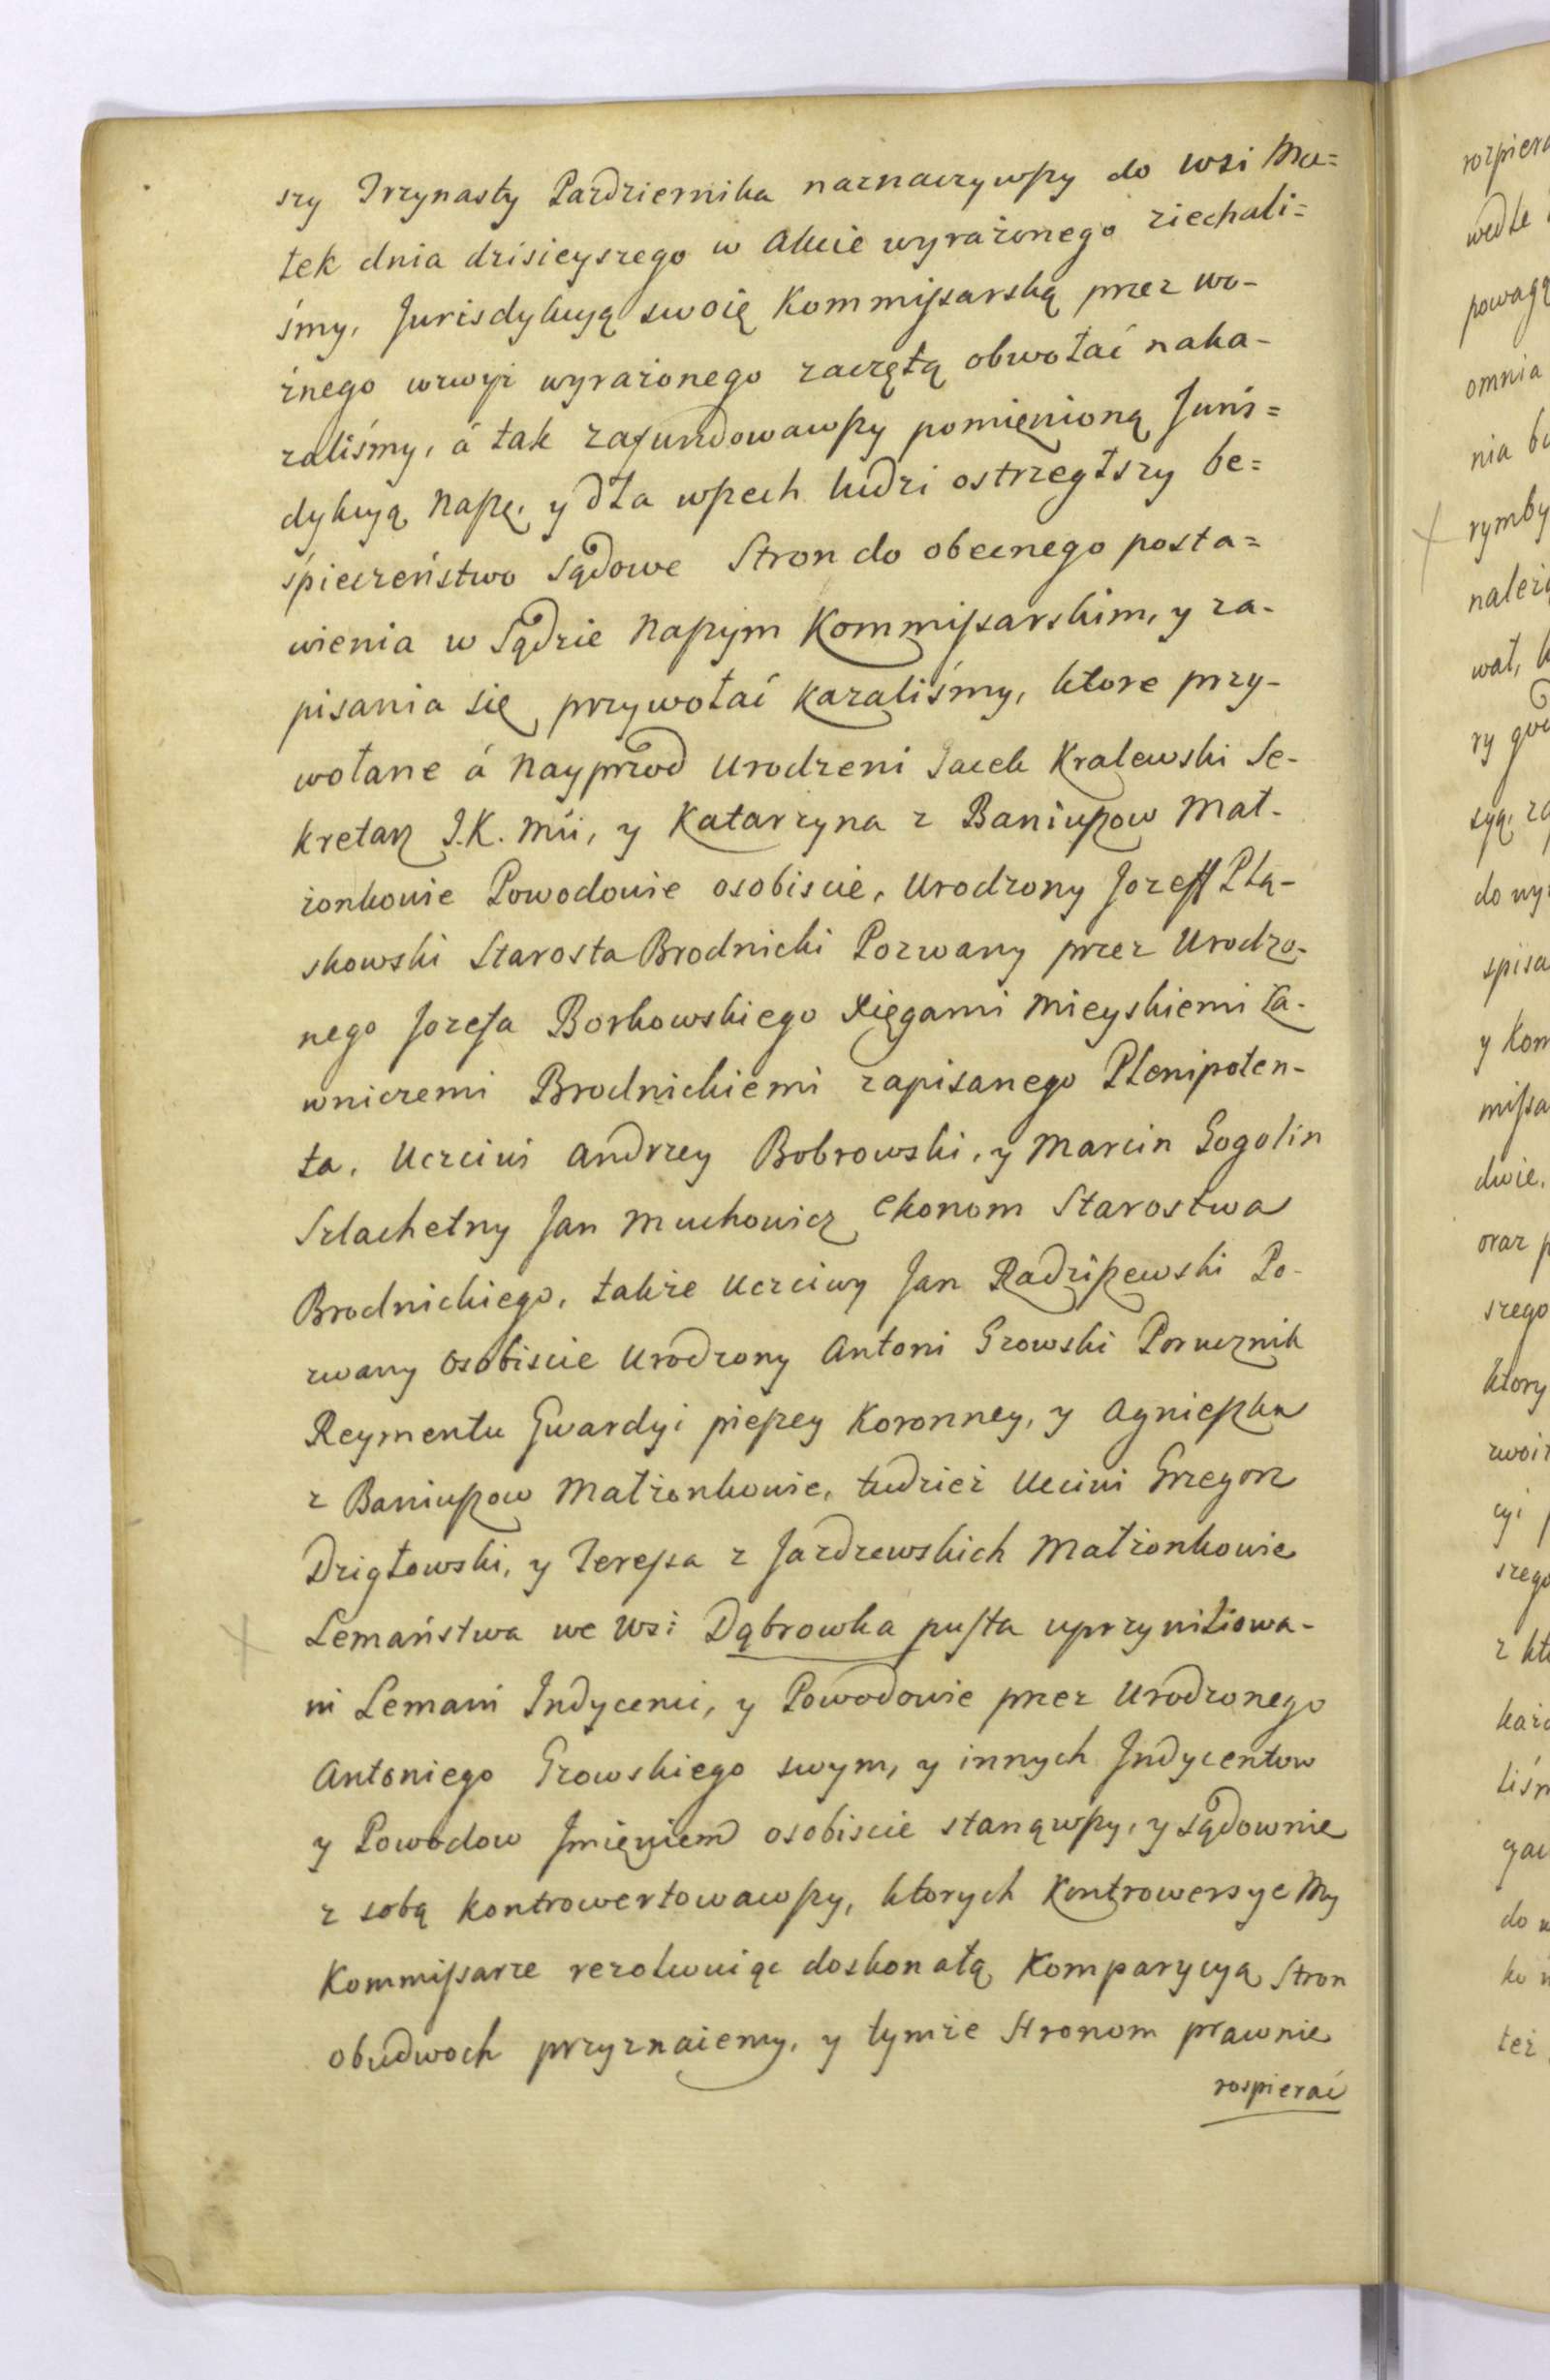 szy Trzynasty Pazdziernika naznaczywszy do wsi Ma=
tek dnia dzisieyszego w Akcie wyrażonego ziechali=
śmy, Jurisdykcyą swoię Kommissarską przez wo-
źnego wzwyż wyrażonego zaczętą obwołać naka-
zaliśmy, á tak zafundowawszy pomięnioną Juris=
dykcyą Naszę, y dla wszech ludzi ostrzegłszy be=
śpieczeństwo Sądowe Stron do obecnego posta=
wienia w Sądzie Naszym Kommissarskim, y za-
pisania się przywołać kazaliśmy, ktore przy-
wołane á Nayprzod Urodzeni Jacek Kralewski Se-
kretarz J.K. Mci, y Katarzyna z Baniuszow Mał-
żonkowie Powodowie osobiscie, Urodzony Jozeff Plą-
skowski Starosta Brodnicki Pozwany przez Urodzo-
nego Jozefa Borkowskiego Xięgami Mieyskiemi Ła-
wniczemi Brodnickiemi zapisanego Plenipoten-
ta, Uczciwi Andrzey Bobrowski, y Marcin Gogolin
Szlachetny Jan Muchowicz Ekonom Starostwa
Brodnickiego, także Uczciwy Jan Radziszewski Po-
zwany osobiscie Urodzony Antoni Gzowski Porucznik
Reymentu Gwardyi pieszey Koronney, y Agnieszka
z Baniuszow Małżonkowie, tudzież Ucciwi Grzegorz
Dzigłowski, y Teressa z Jazdzewskich Małżonkowie
Lemaństwa we Wsi Dąbrowka pusta uprzywiliowa-
ni Lemani Indycenci, y Powodowie przez Urodzonego
Antoniego Gzowskiego swym, y innych Indycentow
y Powodow Jmięniem osobiscie stanąwszy, y sądownie
z sobą kontrowertowawszy, ktorych Kontrowersye My
Kommissarze rezolwuiąc doskonałą Komparycyą Stron
obudwoch przyznaiemy, y tymże Stronom prawnie
rospierać